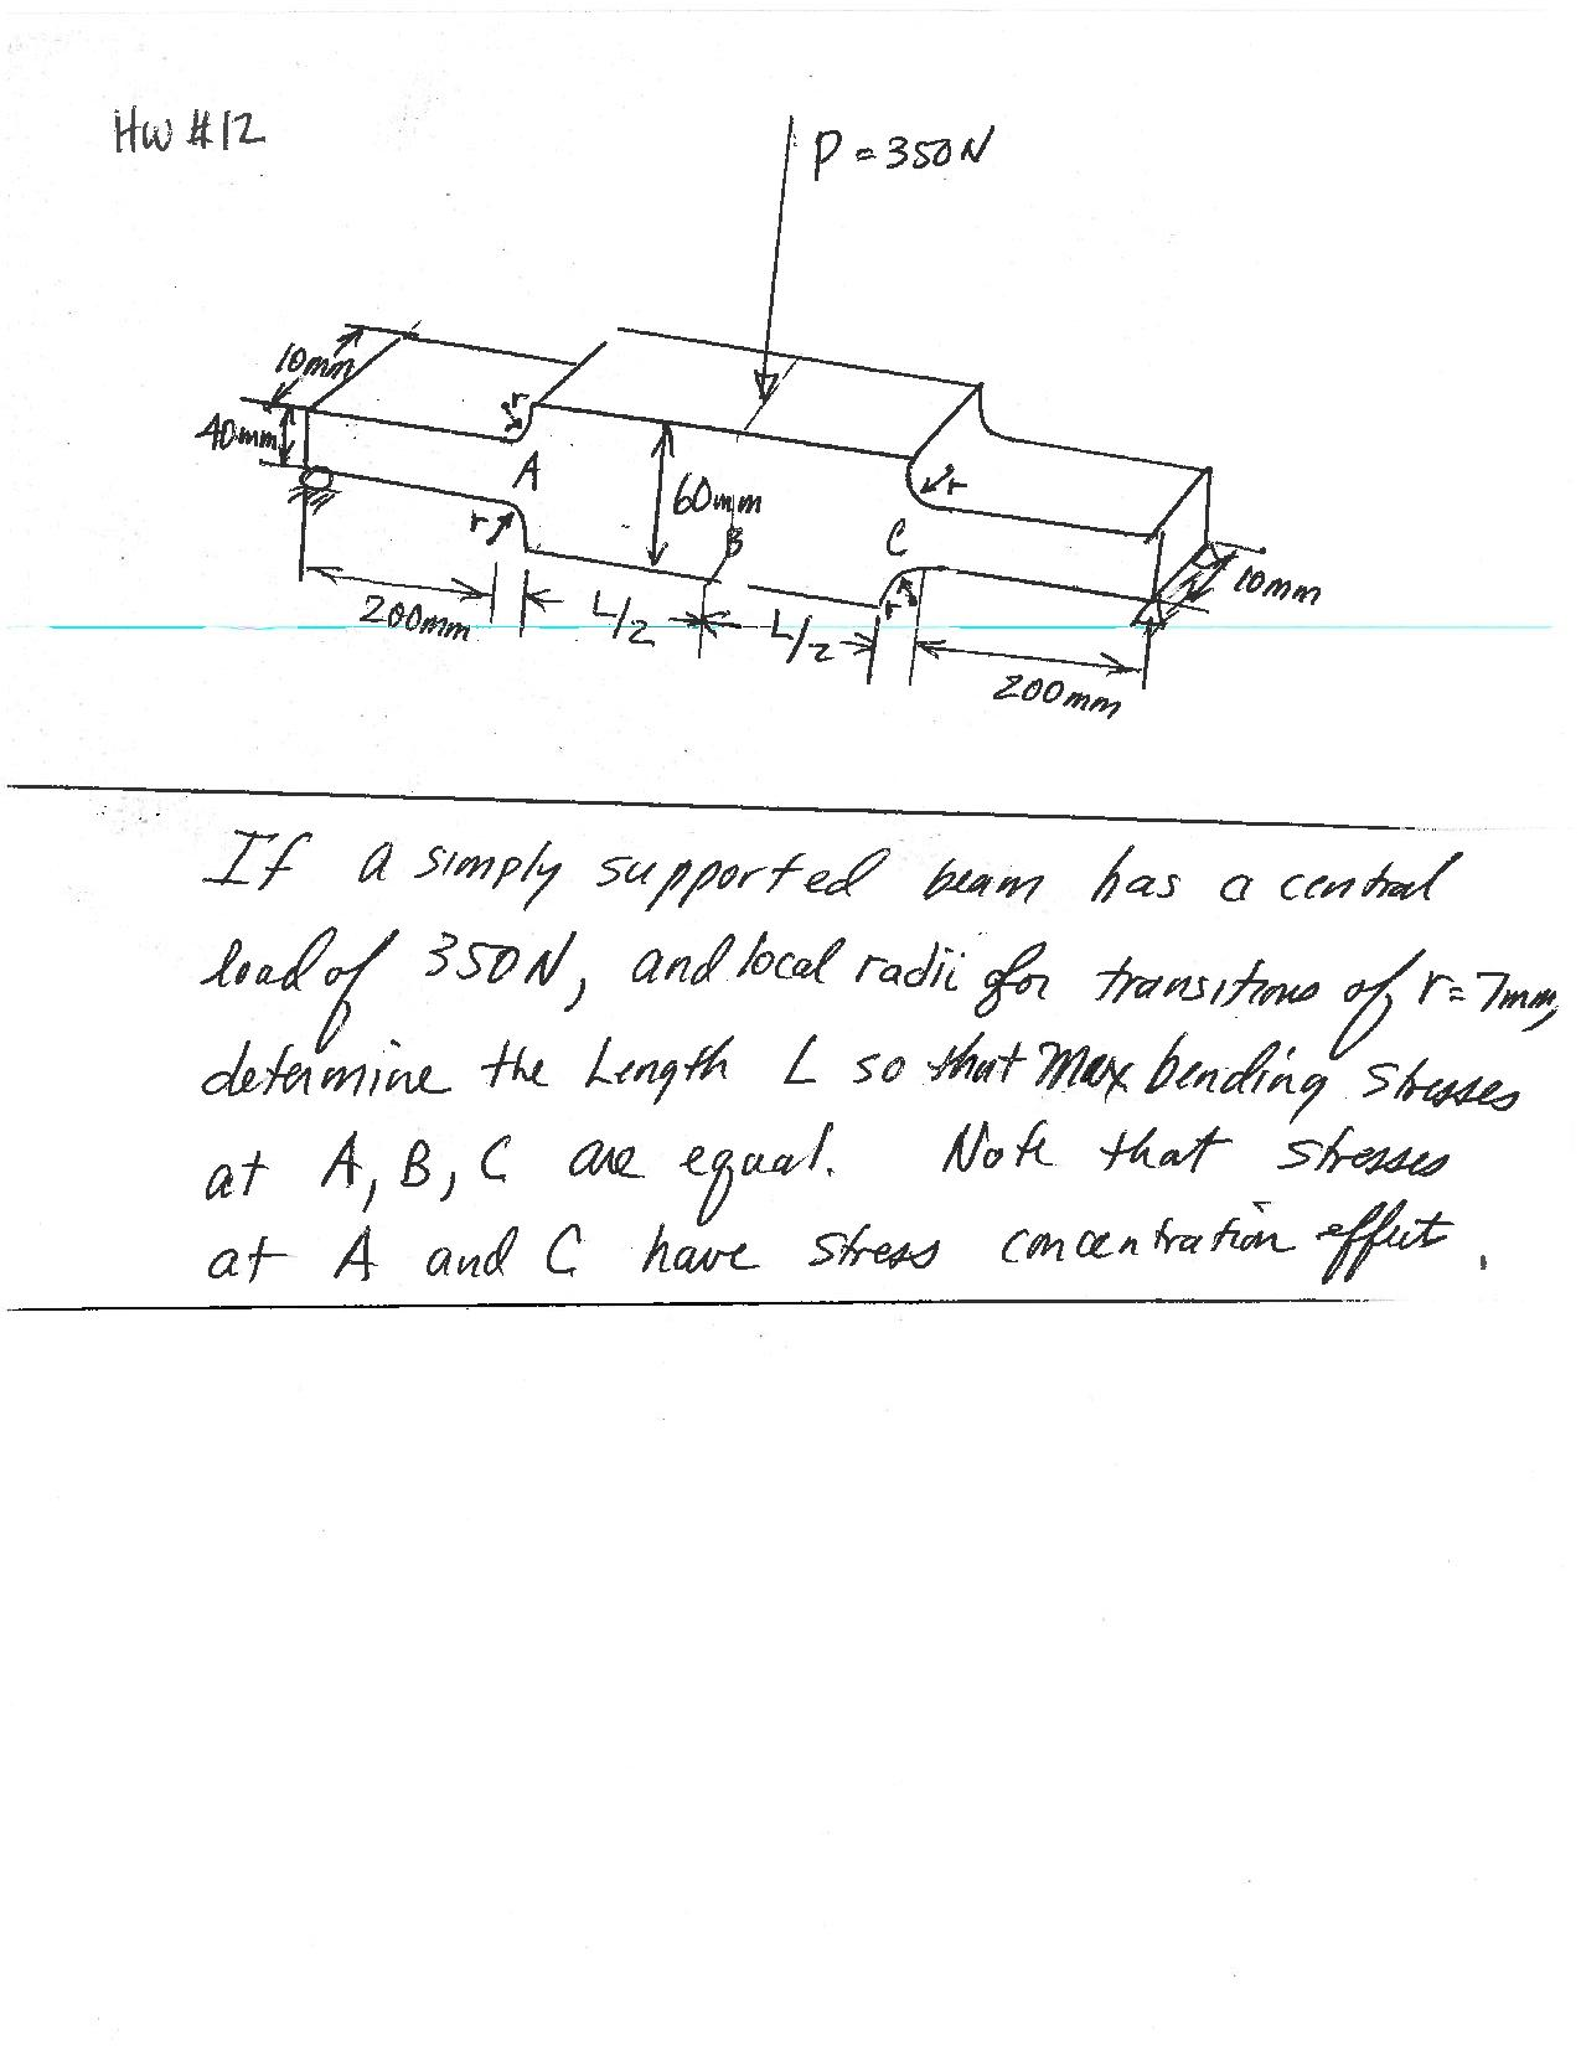 HW #12
P = 350N
10mm
40mm
r
A
r
60mm
B
r
C
r
10mm
200mm
L/2
L/2
200mm
If a simply supported beam has a central
load of 350N, and local radii for transitions of r=7mm,
determine the Length L so that Max bending stresses
at A, B, C are equal. Note that stresses
at A and C have stress concentration effect.